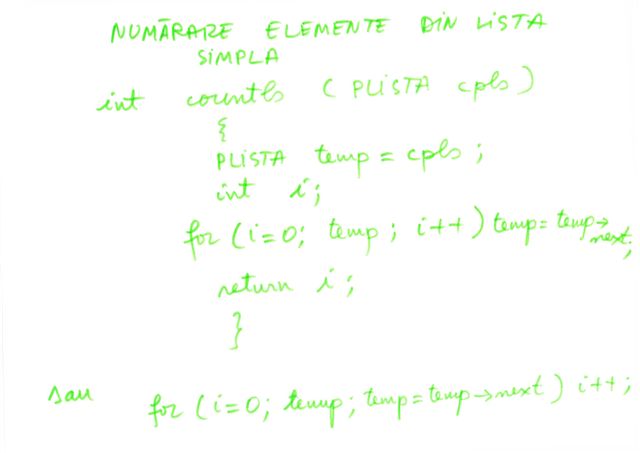 NUMĂRARE ELEMENTE DIN LISTA
SIMPLA
int countls (PLISTA cpls)
{
PLISTA temp = cpls;
int i;
for (i=0; temp; i++) temp = temp→next;
return i;
}
sau for (i=0; temp; temp=temp→next) i++;